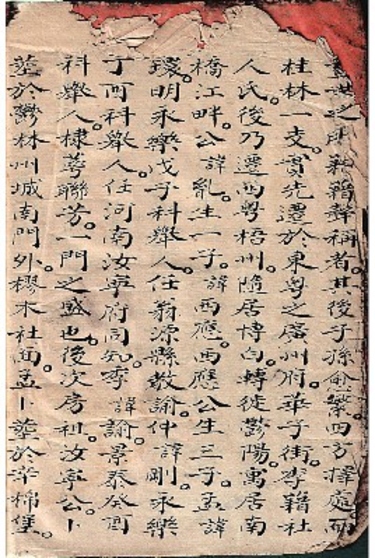 世之功籍籍聲稱者。其後子孫愈繁。四方擇處。而
桂林一支。實先遷於東粤之廣州府。華子街。籍社
人氏。後乃遷西粤梧州。隨居博白。轉徙鬱陽。寓居南
橋江畔。公諱亂。生一子。諱西應。西應公生三子。孟諱
環。明永樂戊子科舉人。任翁源縣教諭。仲諱剛。永樂
丁酉科舉人。任河南汝寧府同知。季諱諭。景泰癸酉
科舉人。棣萼聯芳。一門之盛也。後次房利汝寧公。卜
塟於鬱林州城南門外。樛木社面。孟卜塟於棉堡。